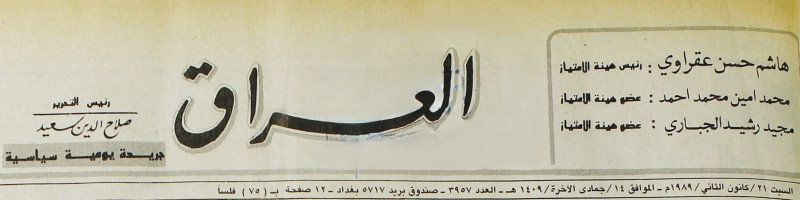 هاشم حسن عقراوي : رئيس هيئة الامتياز
محمد امين محمد احمد : عضو هيئة الامتياز
مجيد رشيد الجباري : عضو هيئة الامتياز
العراق
رئيس التحرير
صلاح الدين سعيد
جريدة يومية سياسية
السبت ٢١/كانون الثاني/١٩٨٩م - الموافق ١٤/جمادى الآخرة/١٤٠٩ هـ - العدد ٣٩٥٧ - صندوق بريد ٥٧١٧ بغداد - ١٢ صفحة بـ (٧٥) فلساً